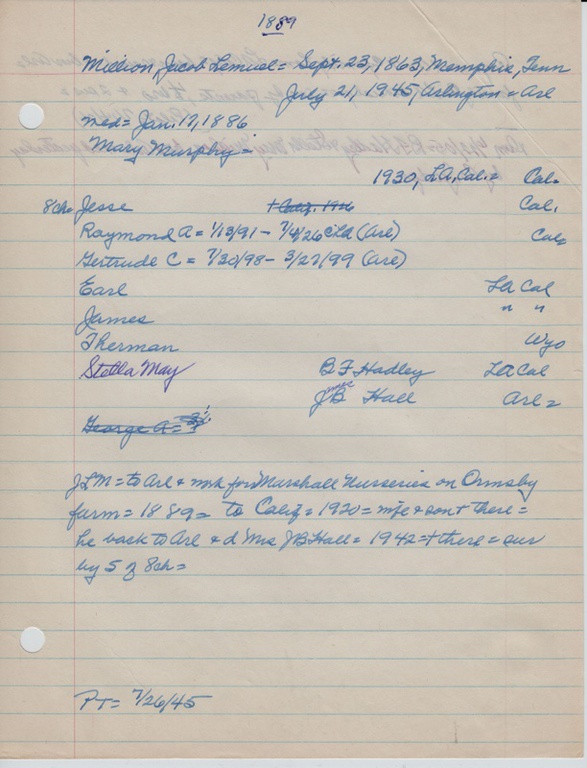 1889
Million, Jacob Lemuel = Sept. 23, 1863, Memphis, Tenn
July 21, 1945, Arlington = Arl
med = Jan. 17, 1886
Mary Murphy =
1930, LA, Cal. = Cal.
8ch = Jesse † Calif. 1926 Cal.
Raymond A = 1/13/91 - 7/4/26 (Arl) Cal
Gertrude C = 7/30/98 - 3/27/99 (Arl)
Earl La Cal
James " "
Therman Wyo
Stella May B F Hadley La Cal
JB Hall Arl =
George A =
JLM = to Arl & wrk for Marshall Nurseries on Ormsby
farm = 1889 = to Calif = 1920 = wife & son † there =
he back to Arl & d Mrs JB Hall = 1942 = † there = sur
by 5 of 8ch =
PT = 7/26/45